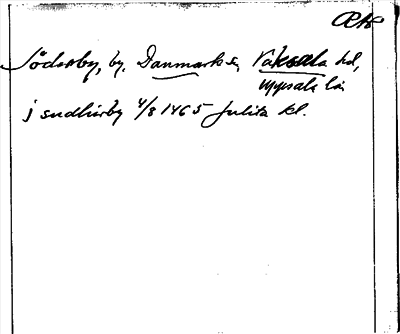 ÆH
Söderby, by. Danmarks s, Vaksala hd,
Uppsala län
j sudhirby 4/8 1465 Julita kl.